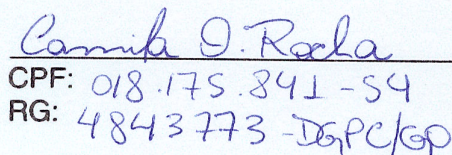 Camila O. Rocha
CPF: 018.175.841-54
RG: 4843773-DGPC/GO